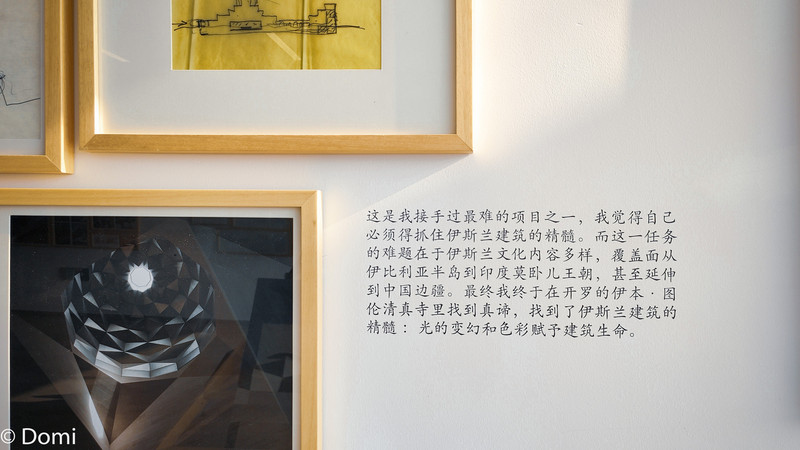 这是我接手过最难的项目之一，我觉得自己
必须得抓住伊斯兰建筑的精髓。而这一任务
的难题在于伊斯兰文化内容多样，覆盖面从
伊比利亚半岛到印度莫卧儿王朝，甚至延伸
到中国边疆。最终我终于在开罗的伊本·图
伦清真寺里找到真谛，找到了伊斯兰建筑的
精髓：光的变幻和色彩赋予建筑生命。
© Domi